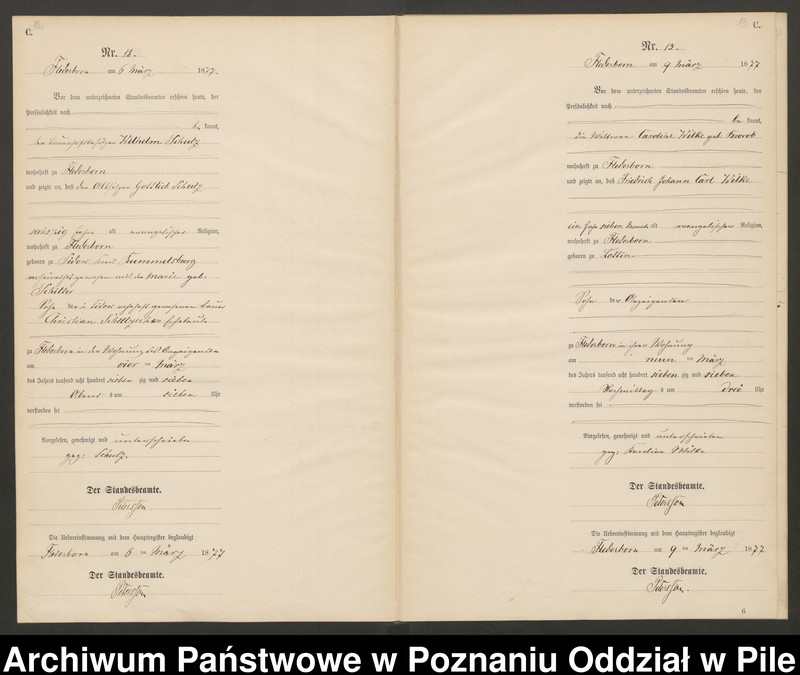 C.
12
Nr. 12.
Flederborn am 6 März 1877.
Vor dem unterzeichneten Standesbeamten erschien heute, der
Persönlichkeit nach
be kannt,
Wilhelm Schulz
wohnhaft zu Flederborn
und zeigte an, daß der Altsitzer Gottlieb Schulz
sechszig Jahre alt evangelischer Religion,
wohnhaft zu Flederborn
geboren zu Kreis Rummelsburg
verheirathet gewesen mit der Marie geb.
Schiller
Sohn der in wohnhaft gewesenen Bauer
Christian Eheleute
zu Flederborn in der Wohnung des Anzeigenden
am vier ten März
des Jahres tausend acht hundert sieben zig und sieben
Abends um sieben Uhr
verstorben sei
Vorgelesen, genehmigt und unterschrieben
gez: Schulz.
Der Standesbeamte.
Petersson
Die Uebereinstimmung mit dem Hauptregister beglaubigt
Flederborn am 6 ten März 1877
Der Standesbeamte.
Petersson
13
C.
Nr. 13.
Flederborn am 9 März 1877
Vor dem unterzeichneten Standesbeamten erschien heute, der
Persönlichkeit nach
be kannt,
die Wittwe Caroline Wilke geb.
wohnhaft zu Flederborn
und zeigte an, daß Friedrich Johann Carl Wilke
ein Jahr sieben Monate alt evangelischer Religion,
wohnhaft zu Flederborn
geboren zu Lottin.
Sohn der Anzeigenden
zu Flederborn in ihrer Wohnung
am neun ten März
des Jahres tausend acht hundert sieben zig und sieben
Nachmittag s um drei Uhr
verstorben sei
Vorgelesen, genehmigt und unterschrieben
gez: Karoline Wilke
Der Standesbeamte.
Petersson
Die Uebereinstimmung mit dem Hauptregister beglaubigt
Flederborn am 9 ten März 1877
Der Standesbeamte.
Petersson.
6
Archiwum Państwowe w Poznaniu Oddział w Pile